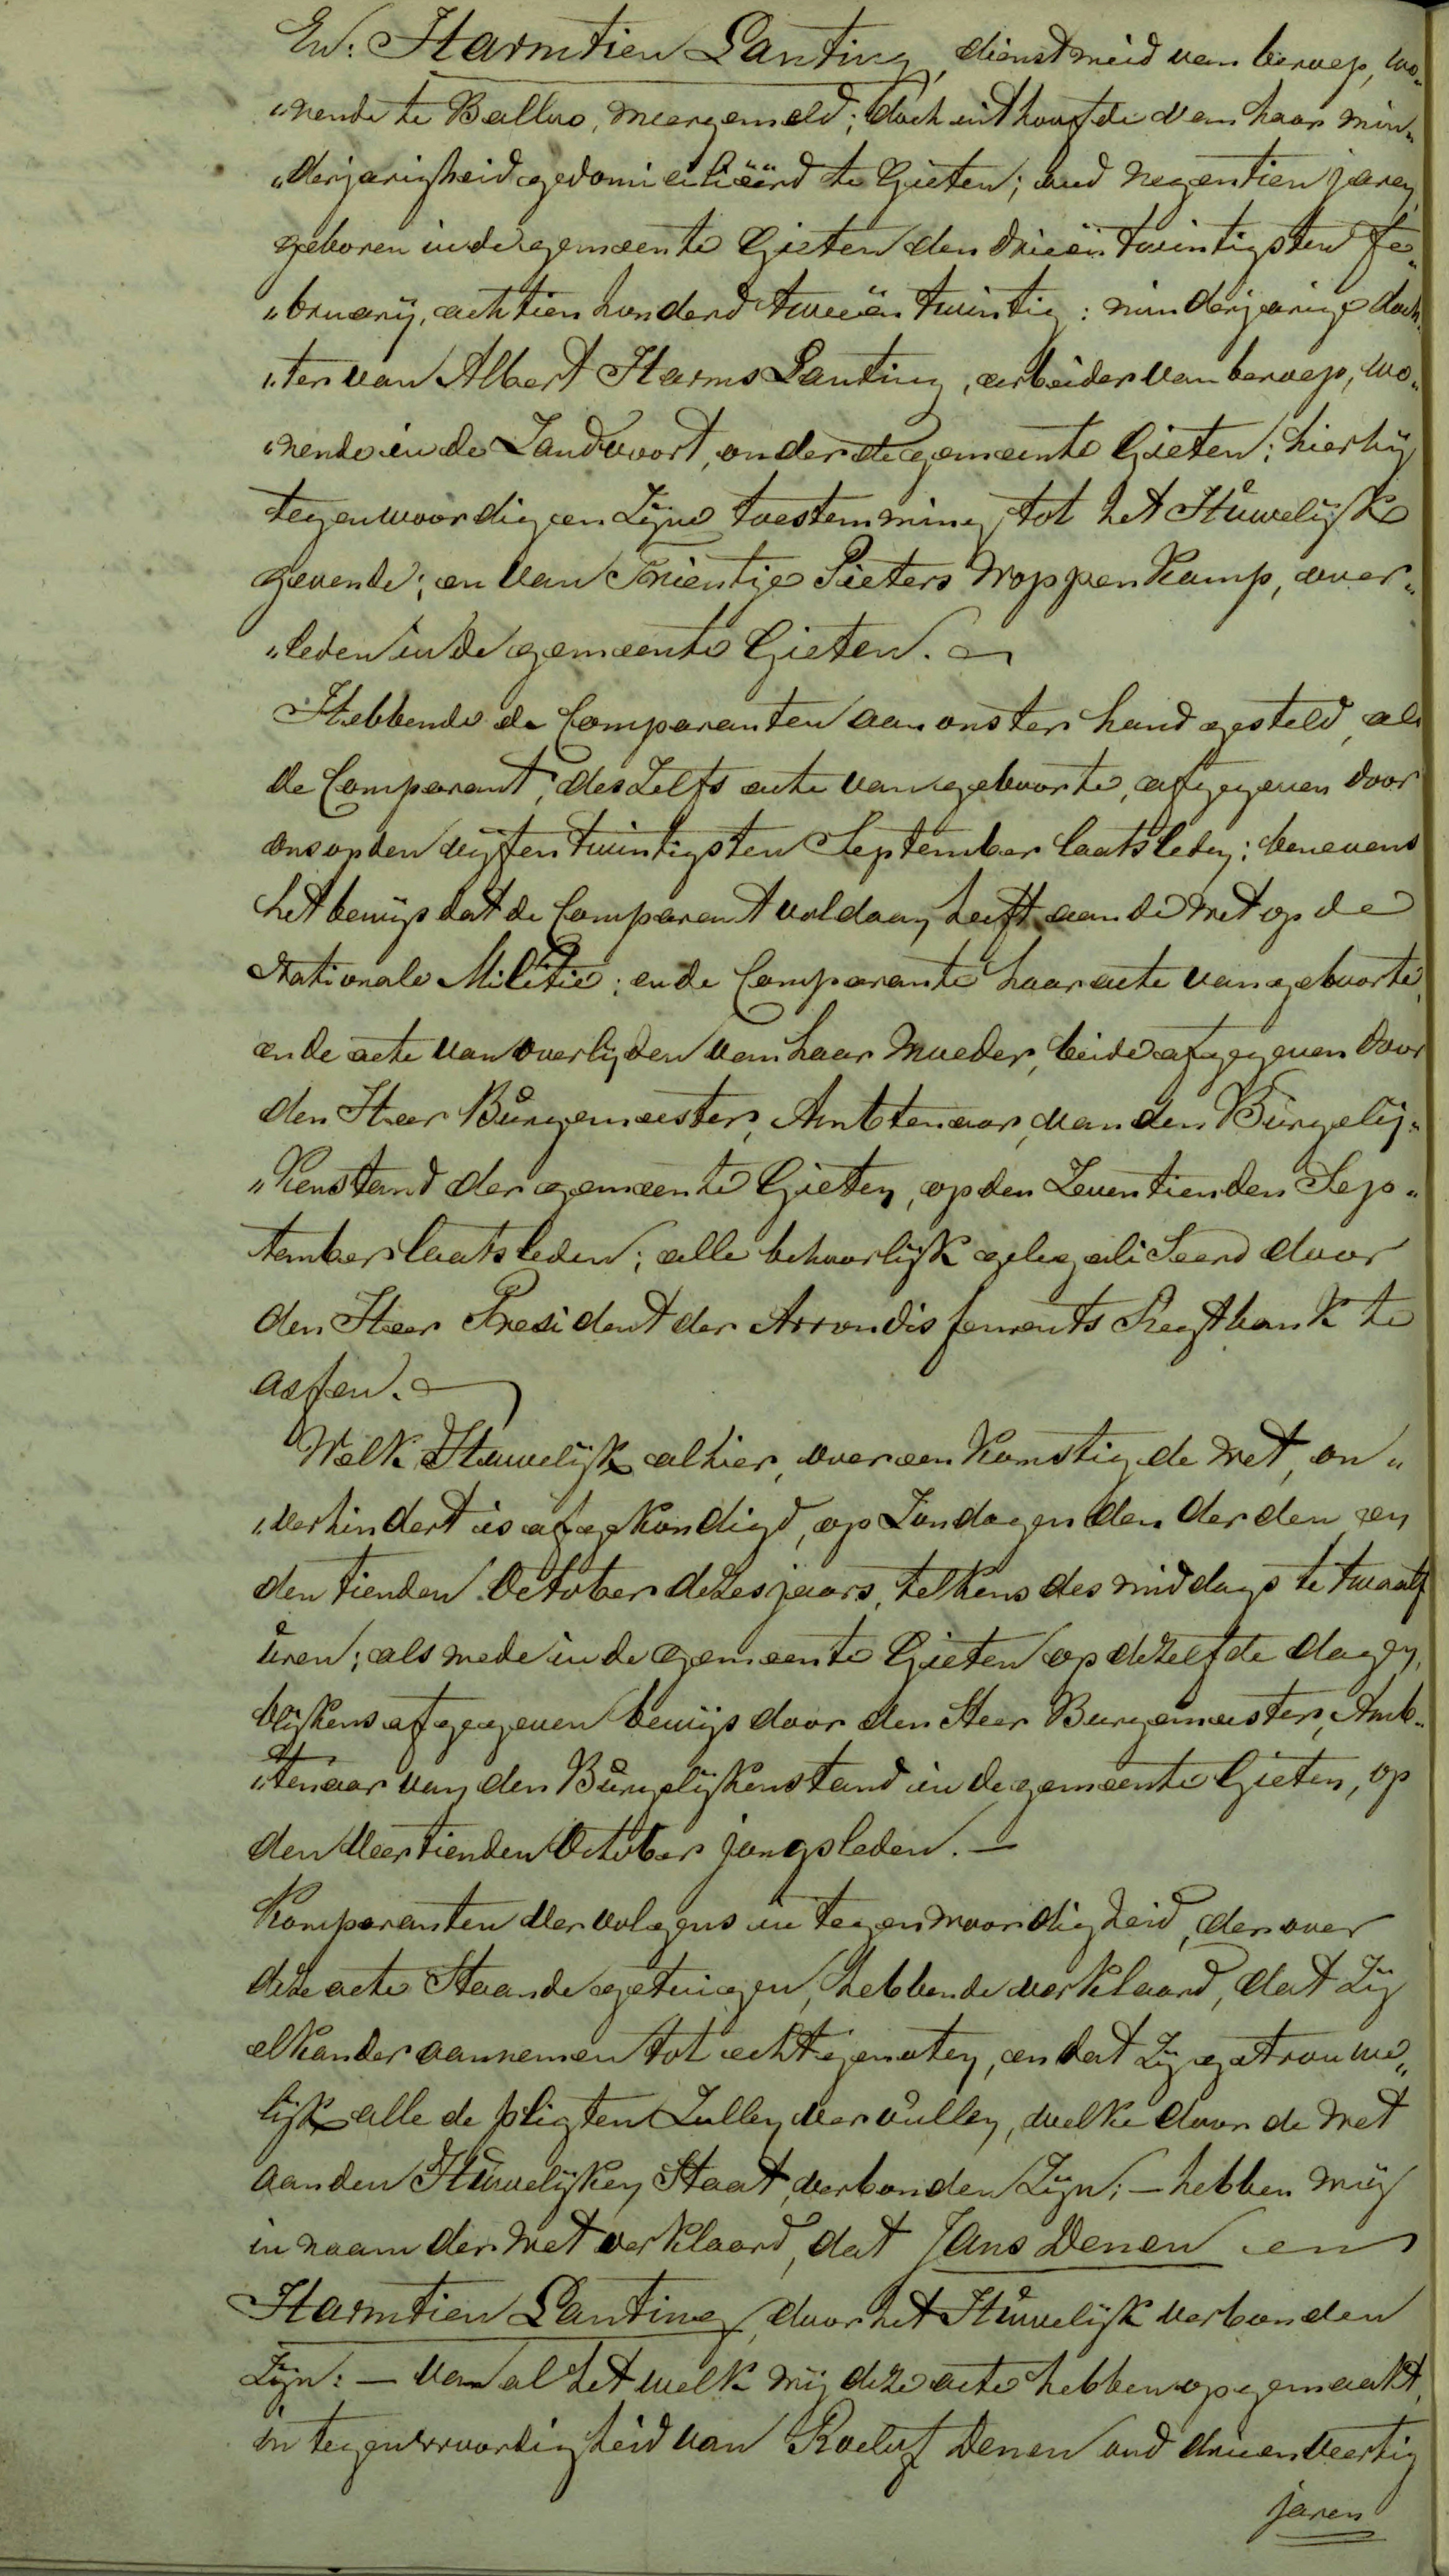 En: Harmtien Lanting, dienstmeid van beroep, wo„
„nende te Balloo, meergemeld; doch uit hoofde van haar min„
„derjarigheid gedomicilieërd te Gieten; oud negentien jaren,
geboren in de gemeente Gieten den drieën twintigsten Fe„
„bruarij, achttien honderd tweeën twintig: minderjarige doch„
„ter van Albert Harms Lanting, arbeider van beroep, wo„
„nende in de Zandvoort, onder de gemeente Gieten; hierbij
tegenwoordig en Zijne toestemming tot het Huwelijk
gevende; en van Trientje Pieters Woppenkamp, over„
„leden in de gemeente Gieten.
Hebbende de Comparanten aan ons ter hand gesteld, als
de Comparant, deszelfs acte van geboorte, afgegeven door
ons op den vijften twintigsten September laatsleden; benevens
het bewijs dat de Comparant voldaan heeft aan de wet op de
Nationale Militie; en de Comparante haar acte van geboorte,
en de acte van overlijden van haar moeder, beide afgegeven door
den Heer Burgemeester, Ambtenaar, van den Burgelij„
„kenstand der gemeente Gieten, op den Zeventienden Sep„
tember laatsleden; alle behoorlijk gelegaliseerd door
den Heer President der Arrondissements Regtbank te
Assen.
Welk Huwelijk alhier, overeenkomstig de wet, on„
„verhindert is afgekondigd, op Zondagen den derden en
den tienden October dezes jaars, telkens des middags te twaalf
uren; als mede in de gemeente Gieten op dezelfde dagen,
blijkens afgegeven bewijs door den Heer Burgemeester, Amb„
„tenaar van den Burgelijkenstand in de gemeente Gieten, op
den Veertienden October jongsleden. —
Komparanten vervolgens in tegenwoordigheid, der over
deze acte Staande getuigen, hebbende verklaard, dat Zij
elkander aannemen tot echtgenoten, en dat Zij getrouwe„
lijk alle de pligten Zullen vervullen, welke door de wet
aan den Huwelijken Staat, verbonden Zijn; — hebben wij
in naam der wet verklaard, dat Jans Denen en
Harmtien Lanting, door het Huwelijk verbonden
Zijn: — van al het welk wij deze acte hebben opgemaakt,
in tegenwoordigheid van Roelof Denen oud drieenveertig
jaren